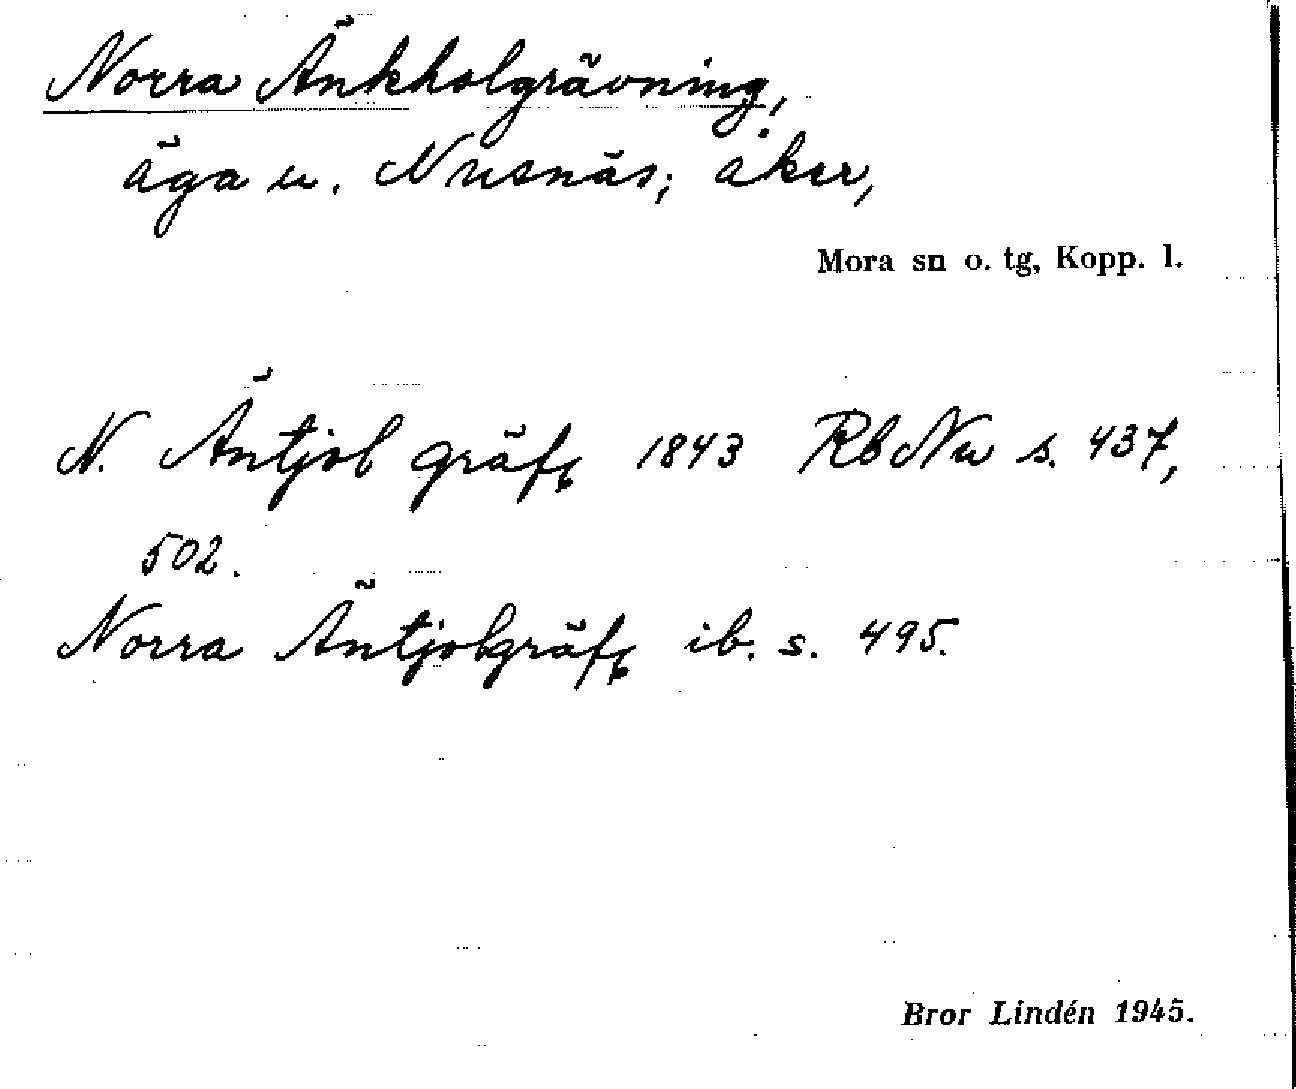 Norra Änkholgrävning,
äga u. Nusnäs; åker,
Mora sn o. tg, Kopp. l.
N. Äntjol gräfg 1843 Rb Nu s. 437,
502.
Norra Äntjolgräfg ib. s. 495.
Bror Lindén 1945.